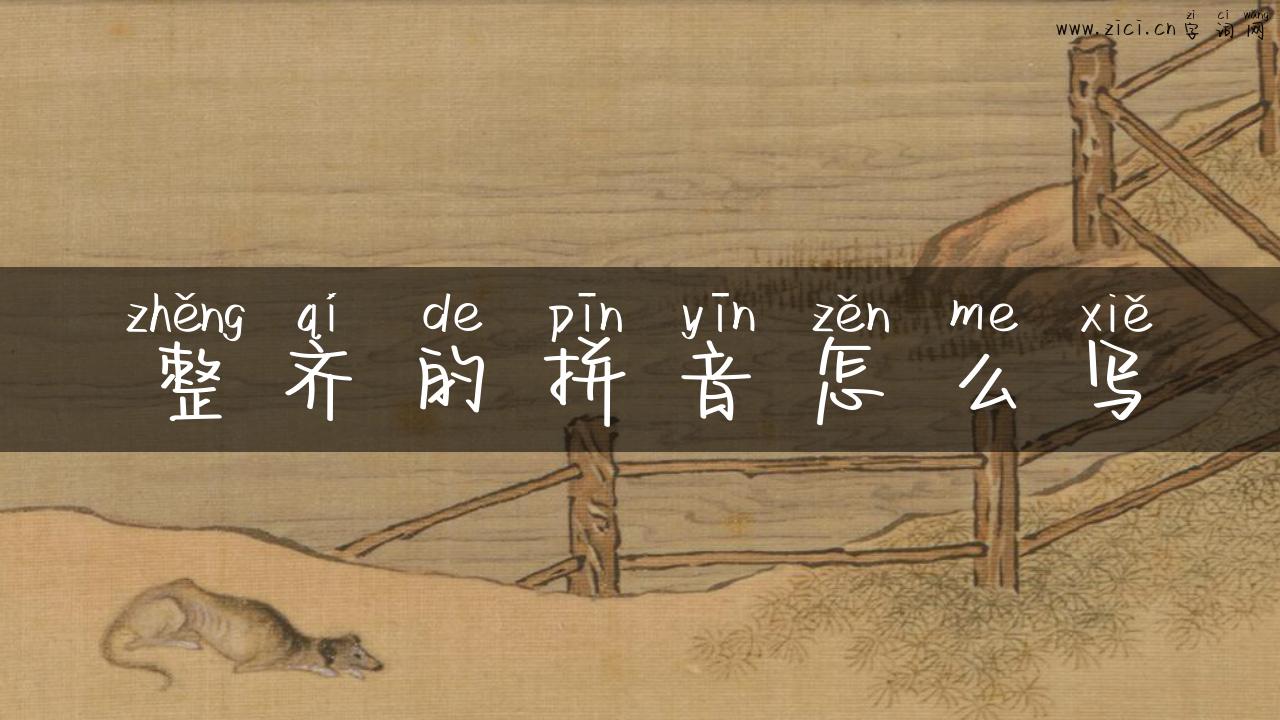 zi ci wang
www.zici.cn 字词网
zhěng qí de pīn yīn zěn me xiě
整齐的拼音怎么写